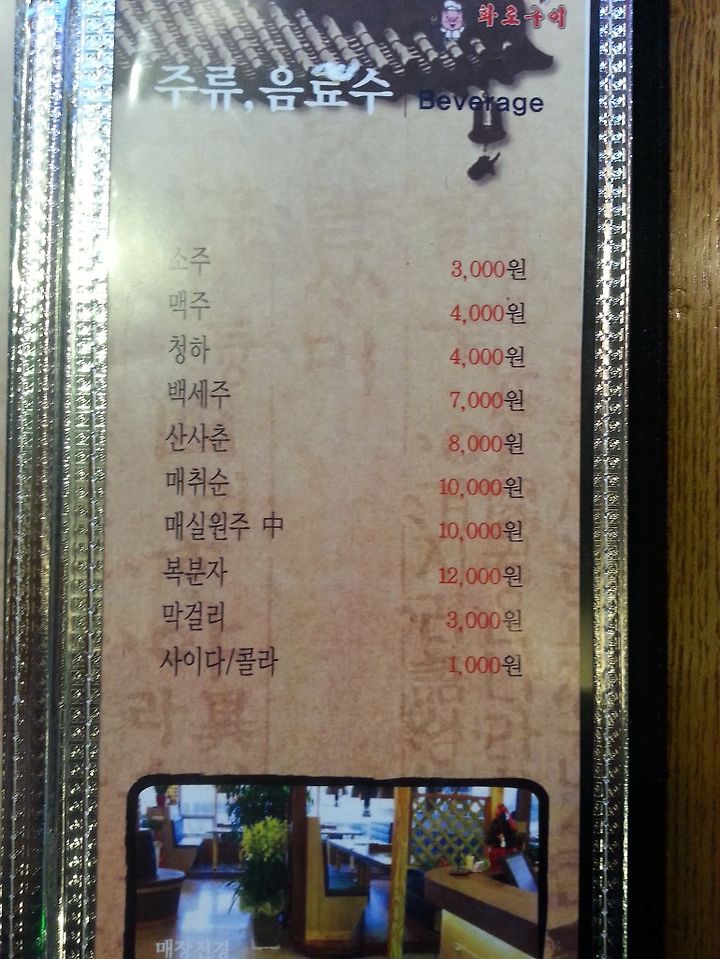 화로구이
주류,음료수 | Beverage
소주 3,000원
맥주 4,000원
청하 4,000원
백세주 7,000원
산사춘 8,000원
매취순 10,000원
매실원주 中 10,000원
복분자 12,000원
막걸리 3,000원
사이다/콜라 1,000원
매장전경